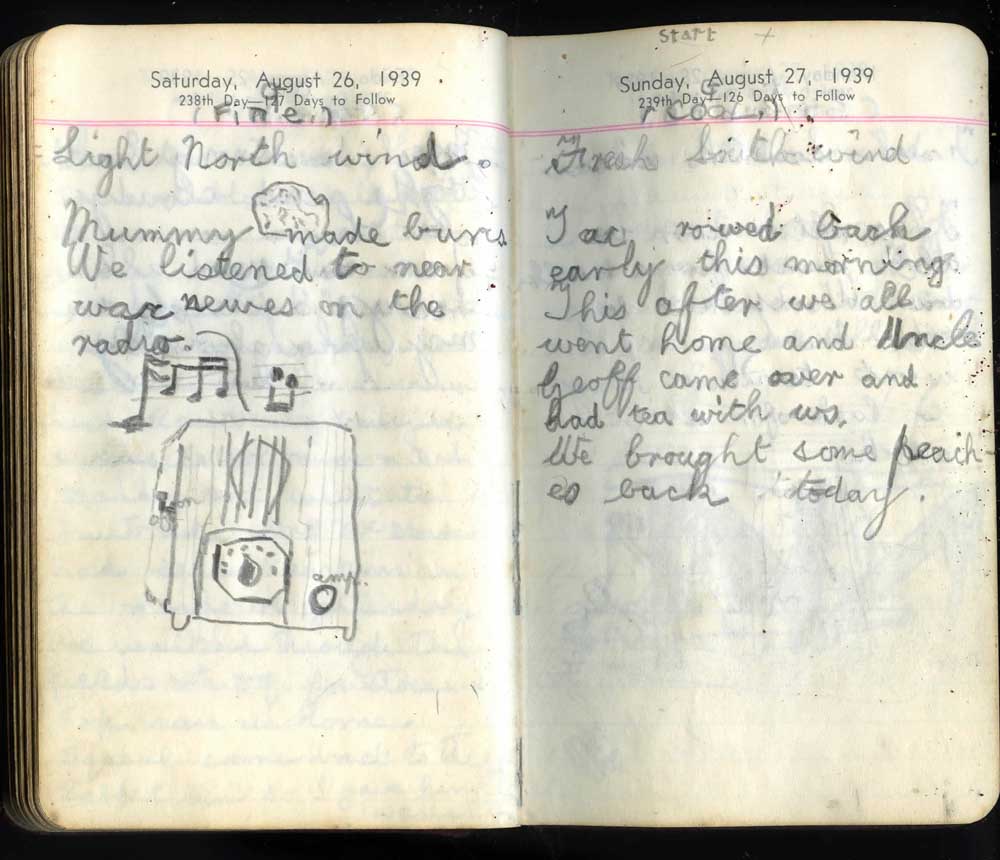 Saturday, August 26, 1939
238th Day—127 Days to Follow
(Fine.)
Light North wind.
Mummy made buns
We listened to near
war newes on the
radio.
on
off
amp.
Start
Sunday, August 27, 1939
239th Day—126 Days to Follow
(Cool.)
Fresh South wind
I rowed back
early this morning.
This after we all
went home and Uncle
Geoff came over and
had tea with us.
We brought some peach-
es back today.